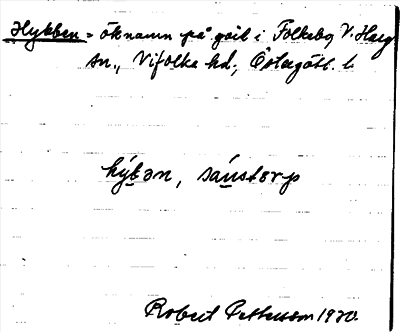 Hybben = öknamn på gård i Folkeby, V. Harg
sn., Vifolka hd, Östergötl. l.
hýbən, sánstɔrp
Robert Pettersson 1920.